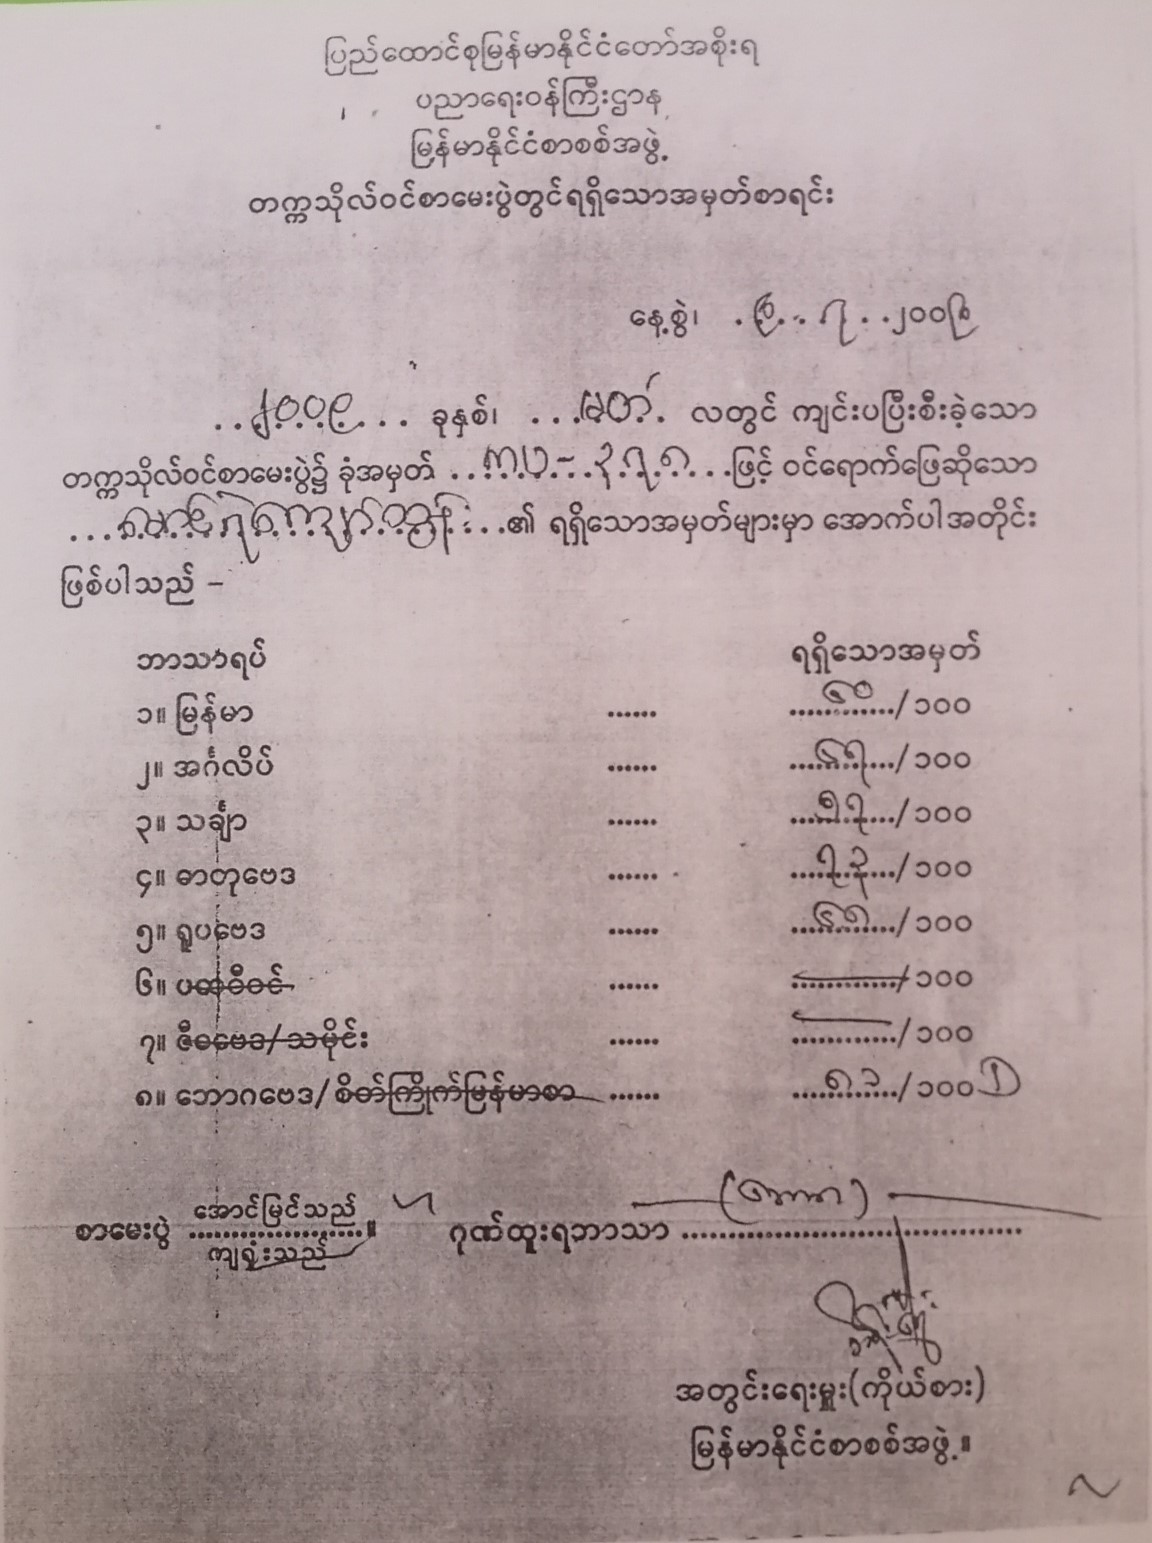 ပြည်ထောင်စုမြန်မာနိုင်ငံတော်အစိုးရ
ပညာရေးဝန်ကြီးဌာန
မြန်မာနိုင်ငံစာစစ်အဖွဲ့
တက္ကသိုလ်ဝင်စာမေးပွဲတွင်ရရှိသောအမှတ်စာရင်း
နေ့စွဲ၊
...၂၀၀၉... ခုနှစ်၊ ...မတ်. လတွင် ကျင်းပပြီးစီးခဲ့သော
တက္ကသိုလ်ဝင်စာမေးပွဲ၌ ခုံအမှတ် ဖြင့် ဝင်ရောက်ဖြေဆိုသော
၏ ရရှိသောအမှတ်များမှာ အောက်ပါအတိုင်း
ဖြစ်ပါသည် –
ဘာသာရပ် ရရှိသောအမှတ်
၁။ မြန်မာ ...... /၁၀၀
၂။ အင်္ဂလိပ် ...... /၁၀၀
၃။ သင်္ချာ ...... /၁၀၀
၄။ ဓာတုဗေဒ ...... ၇၃/၁၀၀
၅။ ရူပဗေဒ ...... /၁၀၀
၆။ ပထဝီဝင် ...... ............/၁၀၀
၇။ ဇီဝဗေဒ/သမိုင်း ...... ............/၁၀၀
၈။ ဘောဂဗေဒ/စိတ်ကြိုက်မြန်မာစာ ...... /၁၀၀ D
စာမေးပွဲ အောင်မြင်သည် ။ ဂုဏ်ထူးရဘာသာ ..................................
ကျရှုံးသည်
အတွင်းရေးမှူး(ကိုယ်စား)
မြန်မာနိုင်ငံစာစစ်အဖွဲ့။